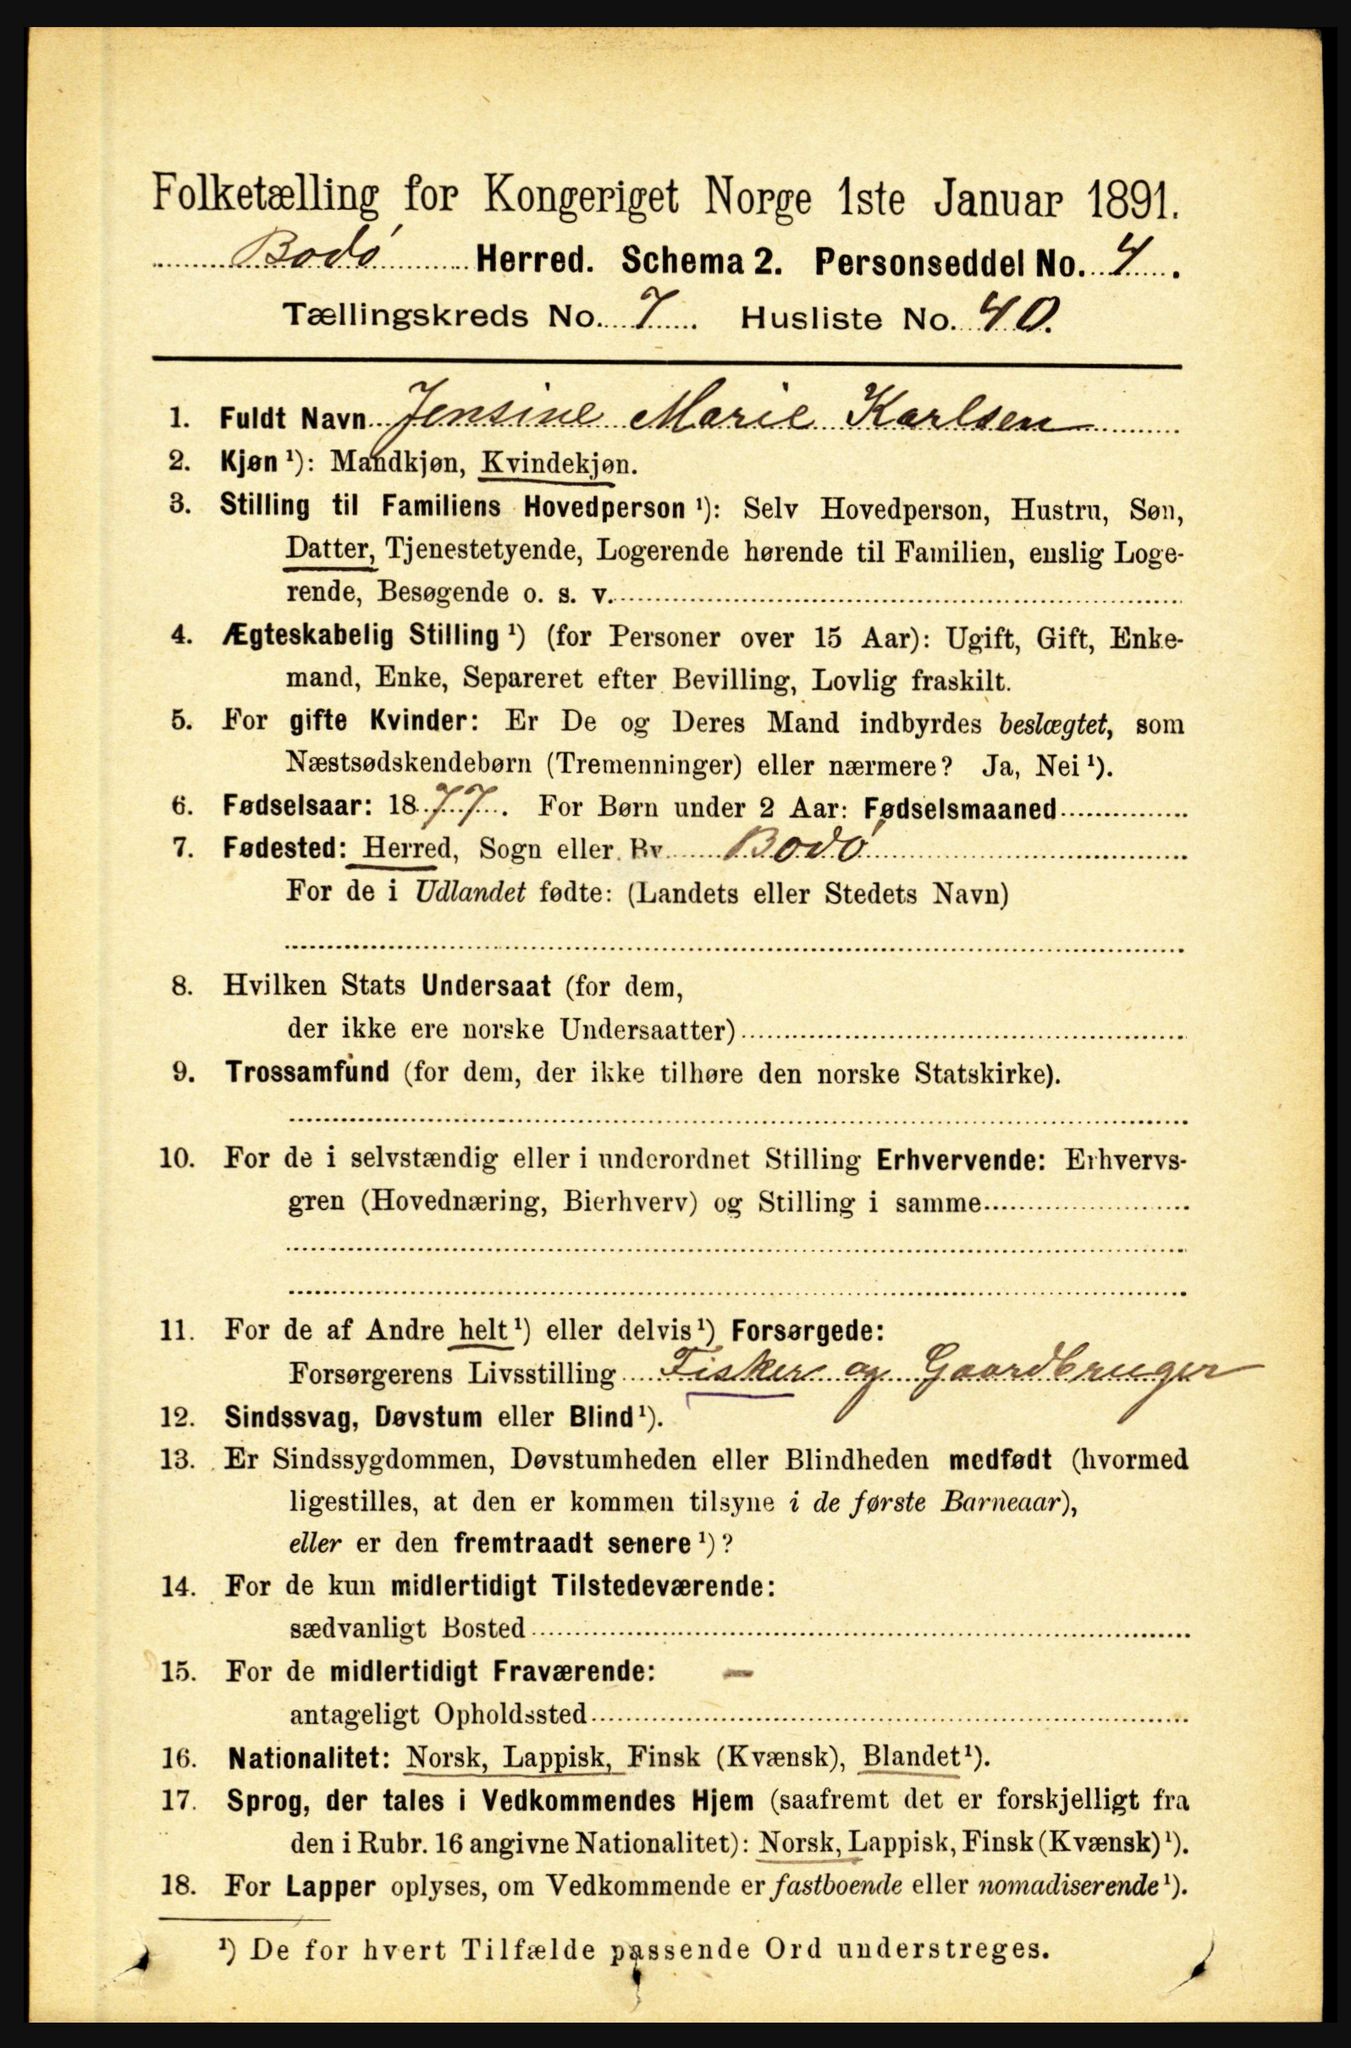 Folketælling for Kongeriget Norge 1ste Januar 1891.
Bodø Herred. Schema 2. Personseddel No. 4.
Tællingskreds No. 7. Husliste No. 40.
1. Fuldt Navn Jensine Marie Karlsen
2. Kjøn ¹): Mandkjøn, Kvindekjøn.
3. Stilling til Familiens Hovedperson ¹): Selv Hovedperson, Hustru, Søn,
Datter, Tjenestetyende, Logerende hørende til Familien, enslig Loge-
rende, Besøgende o. s. v.
4. Ægteskabelig Stilling ¹) (for Personer over 15 Aar): Ugift, Gift, Enke-
mand, Enke, Separeret efter Bevilling, Lovlig fraskilt.
5. For gifte Kvinder: Er De og Deres Mand indbyrdes beslægtet, som
Næstsødskendebørn (Tremenninger) eller nærmere? Ja, Nei ¹).
6. Fødselsaar: 1877. For Børn under 2 Aar: Fødselsmaaned
7. Fødested: Herred, Sogn eller By Bodø
For de i Udlandet fødte: (Landets eller Stedets Navn)
8. Hvilken Stats Undersaat (for dem,
der ikke ere norske Undersaatter)
9. Trossamfund (for dem, der ikke tilhøre den norske Statskirke).
10. For de i selvstændig eller i underordnet Stilling Erhvervende: Erhvervs-
gren (Hovednæring, Bierhverv) og Stilling i samme
11. For de af Andre helt ¹) eller delvis ¹) Forsørgede:
Forsørgerens Livsstilling Fisker og Gaardbruger
12. Sindssvag, Døvstum eller Blind ¹).
13. Er Sindssygdommen, Døvstumheden eller Blindheden medfødt (hvormed
ligestilles, at den er kommen tilsyne i de første Barneaar),
eller er den fremtraadt senere ¹)?
14. For de kun midlertidigt Tilstedeværende:
sædvanligt Bosted
15. For de midlertidigt Fraværende: –
antageligt Opholdssted
16. Nationalitet: Norsk, Lappisk, Finsk (Kvænsk), Blandet ¹).
17. Sprog, der tales i Vedkommendes Hjem (saafremt det er forskjelligt fra
den i Rubr. 16 angivne Nationalitet): Norsk, Lappisk, Finsk (Kvænsk) ¹).
18. For Lapper oplyses, om Vedkommende er fastboende eller nomadiserende ¹).
¹) De for hvert Tilfælde passende Ord understreges.